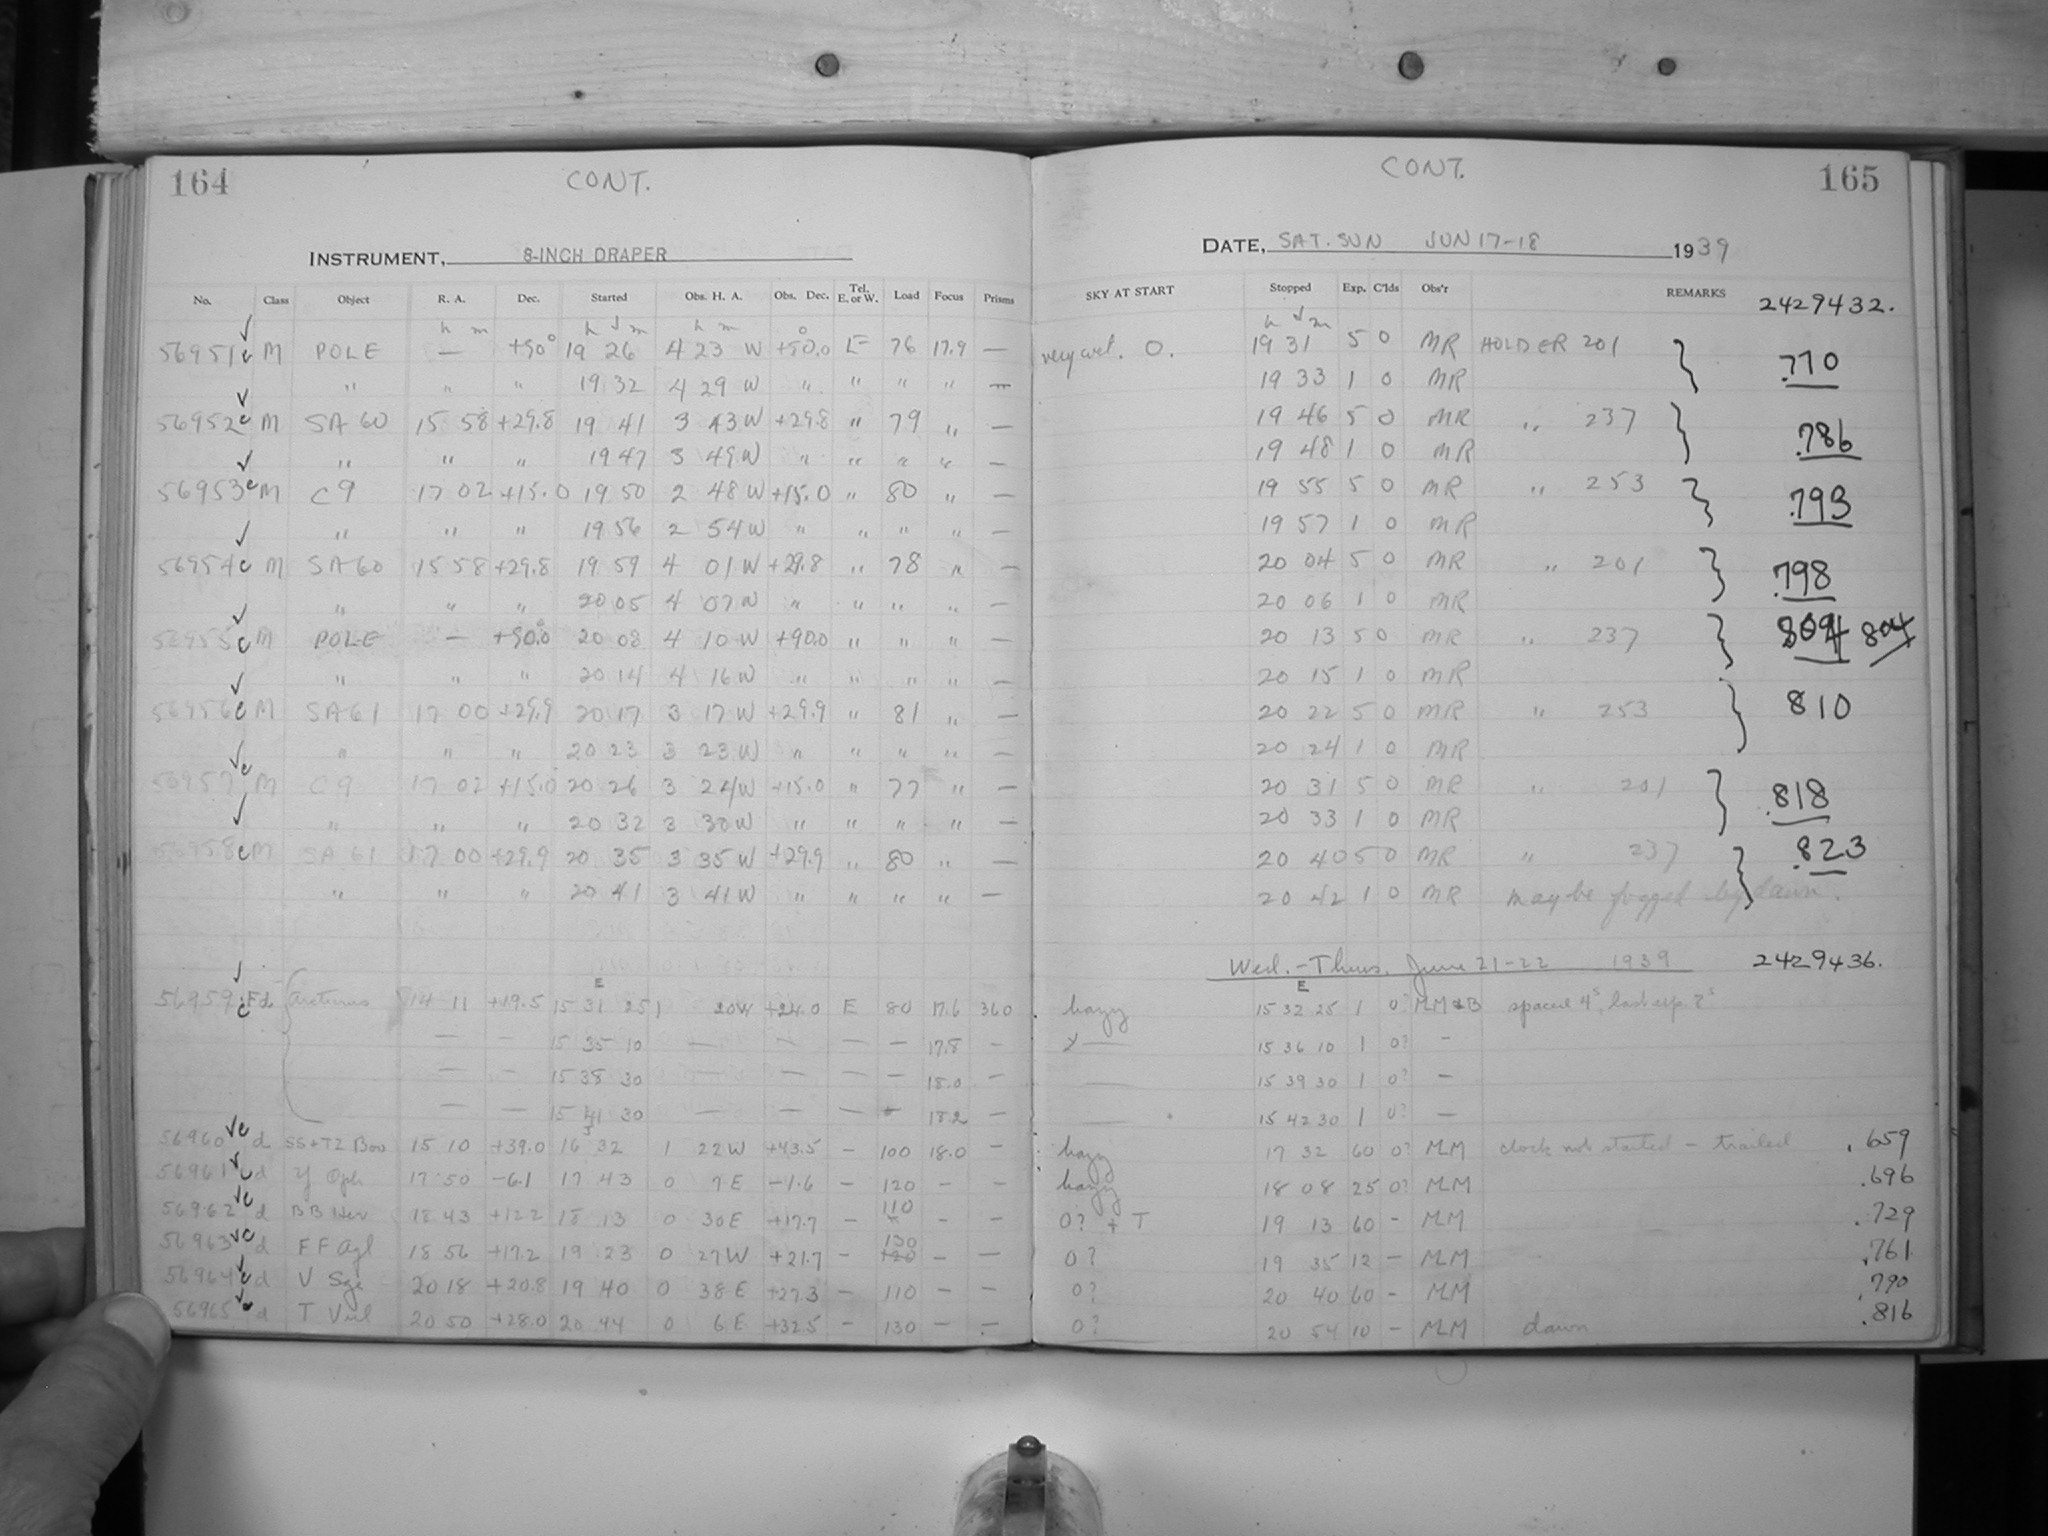 164 CONT.
INSTRUMENT, 8-INCH DRAPER
No. Class Object R. A. Dec. Started Obs. H. A. Obs. Dec. Tel. E. or W. Load Focus Prisms
h m h m h m °
56951 c M POLE — +90° 19 26 4 23 W +90.0 E 76 17.9 —
" " " 19 32 4 29 W " " " " —
56952 c M SA 60 15 58 +29.8 19 41 3 43 W +29.8 " 79 " —
" " " 19 47 3 49 W " " " " —
56953 c M C9 17 02 +15.0 19 50 2 48 W +15.0 " 80 " —
" " " 19 56 2 54 W " " " " —
56954 c M SA 60 15 58 +29.8 19 59 4 01 W +29.8 " 78 " —
" " " 20 05 4 07 W " " " " —
56955 c M POLE — +90.0 20 08 4 10 W +90.0 " " " —
" " " 20 14 4 16 W " " " " —
56956 c M SA 61 17 00 +29.9 20 17 3 17 W +29.9 " 81 " —
" " " 20 23 3 23 W " " " " —
56957 c M C9 17 02 +15.0 20 26 3 24 W +15.0 " 77 " —
" " " 20 32 3 30 W " " " " —
56958 c M SA 61 17 00 +29.9 20 35 3 35 W +29.9 " 80 " —
" " " 20 41 3 41 W " " " " —
E
56959 c Fd Arcturus 14 11 +19.5 15 31 25 1 20 W +24.0 E 80 17.6 360
— — 15 35 10 — — — — 17.8 —
— — 15 38 30 — — — — 18.0 —
— — 15 41 30 — — — 18.2 —
56960 c d SS+TZ Boo 15 10 +39.0 16 32 1 22 W +43.5 — 100 18.0 —
56961 c d Y Oph 17 50 -6.1 17 43 0 7 E -1.6 — 120 — —
56962 c d BB Her 18 43 +12.2 18 13 0 30 E +17.7 — 110 — —
56963 c d FF Aql 18 56 +17.2 19 23 0 27 W +21.7 — 130 120 — —
56964 c d V Sge 20 18 +20.8 19 40 0 38 E +27.3 — 110 — —
56965 c d T Vul 20 50 +28.0 20 44 0 6 E +32.5 — 130 — —
CONT. 165
DATE, SAT. SUN JUN 17-18 1939
SKY AT START Stopped Exp. C'lds Obs'r REMARKS 2429432.
h m
very wet. 0. 19 31 5 0 MR HOLDER 201 .770
19 33 1 0 MR
19 46 5 0 MR " 237 .786
19 48 1 0 MR
19 55 5 0 MR " 253 .793
19 57 1 0 MR
20 04 5 0 MR " 201 .798
20 06 1 0 MR
20 13 5 0 MR " 237 804 804
20 15 1 0 MR
20 22 5 0 MR " 253 810
20 24 1 0 MR
20 31 5 0 MR " 201 .818
20 33 1 0 MR
20 40 5 0 MR " 237 .823
20 42 1 0 MR may be fogged by dawn.
Wed. - Thurs. June 21-22 1939 2429436.
E
hazy 15 32 25 1 0? MM&B spaced 4s, last exp. 8s
15 36 10 1 0? —
15 39 30 1 0? —
15 42 30 1 0? —
hazy 17 32 60 0? MM clock not started - trailed .659
hazy 18 08 25 0? MM .696
0? + T 19 13 60 - MM .729
0? 19 35 12 - MM .761
0? 20 40 60 - MM .790
0? 20 54 10 - MM dawn .816